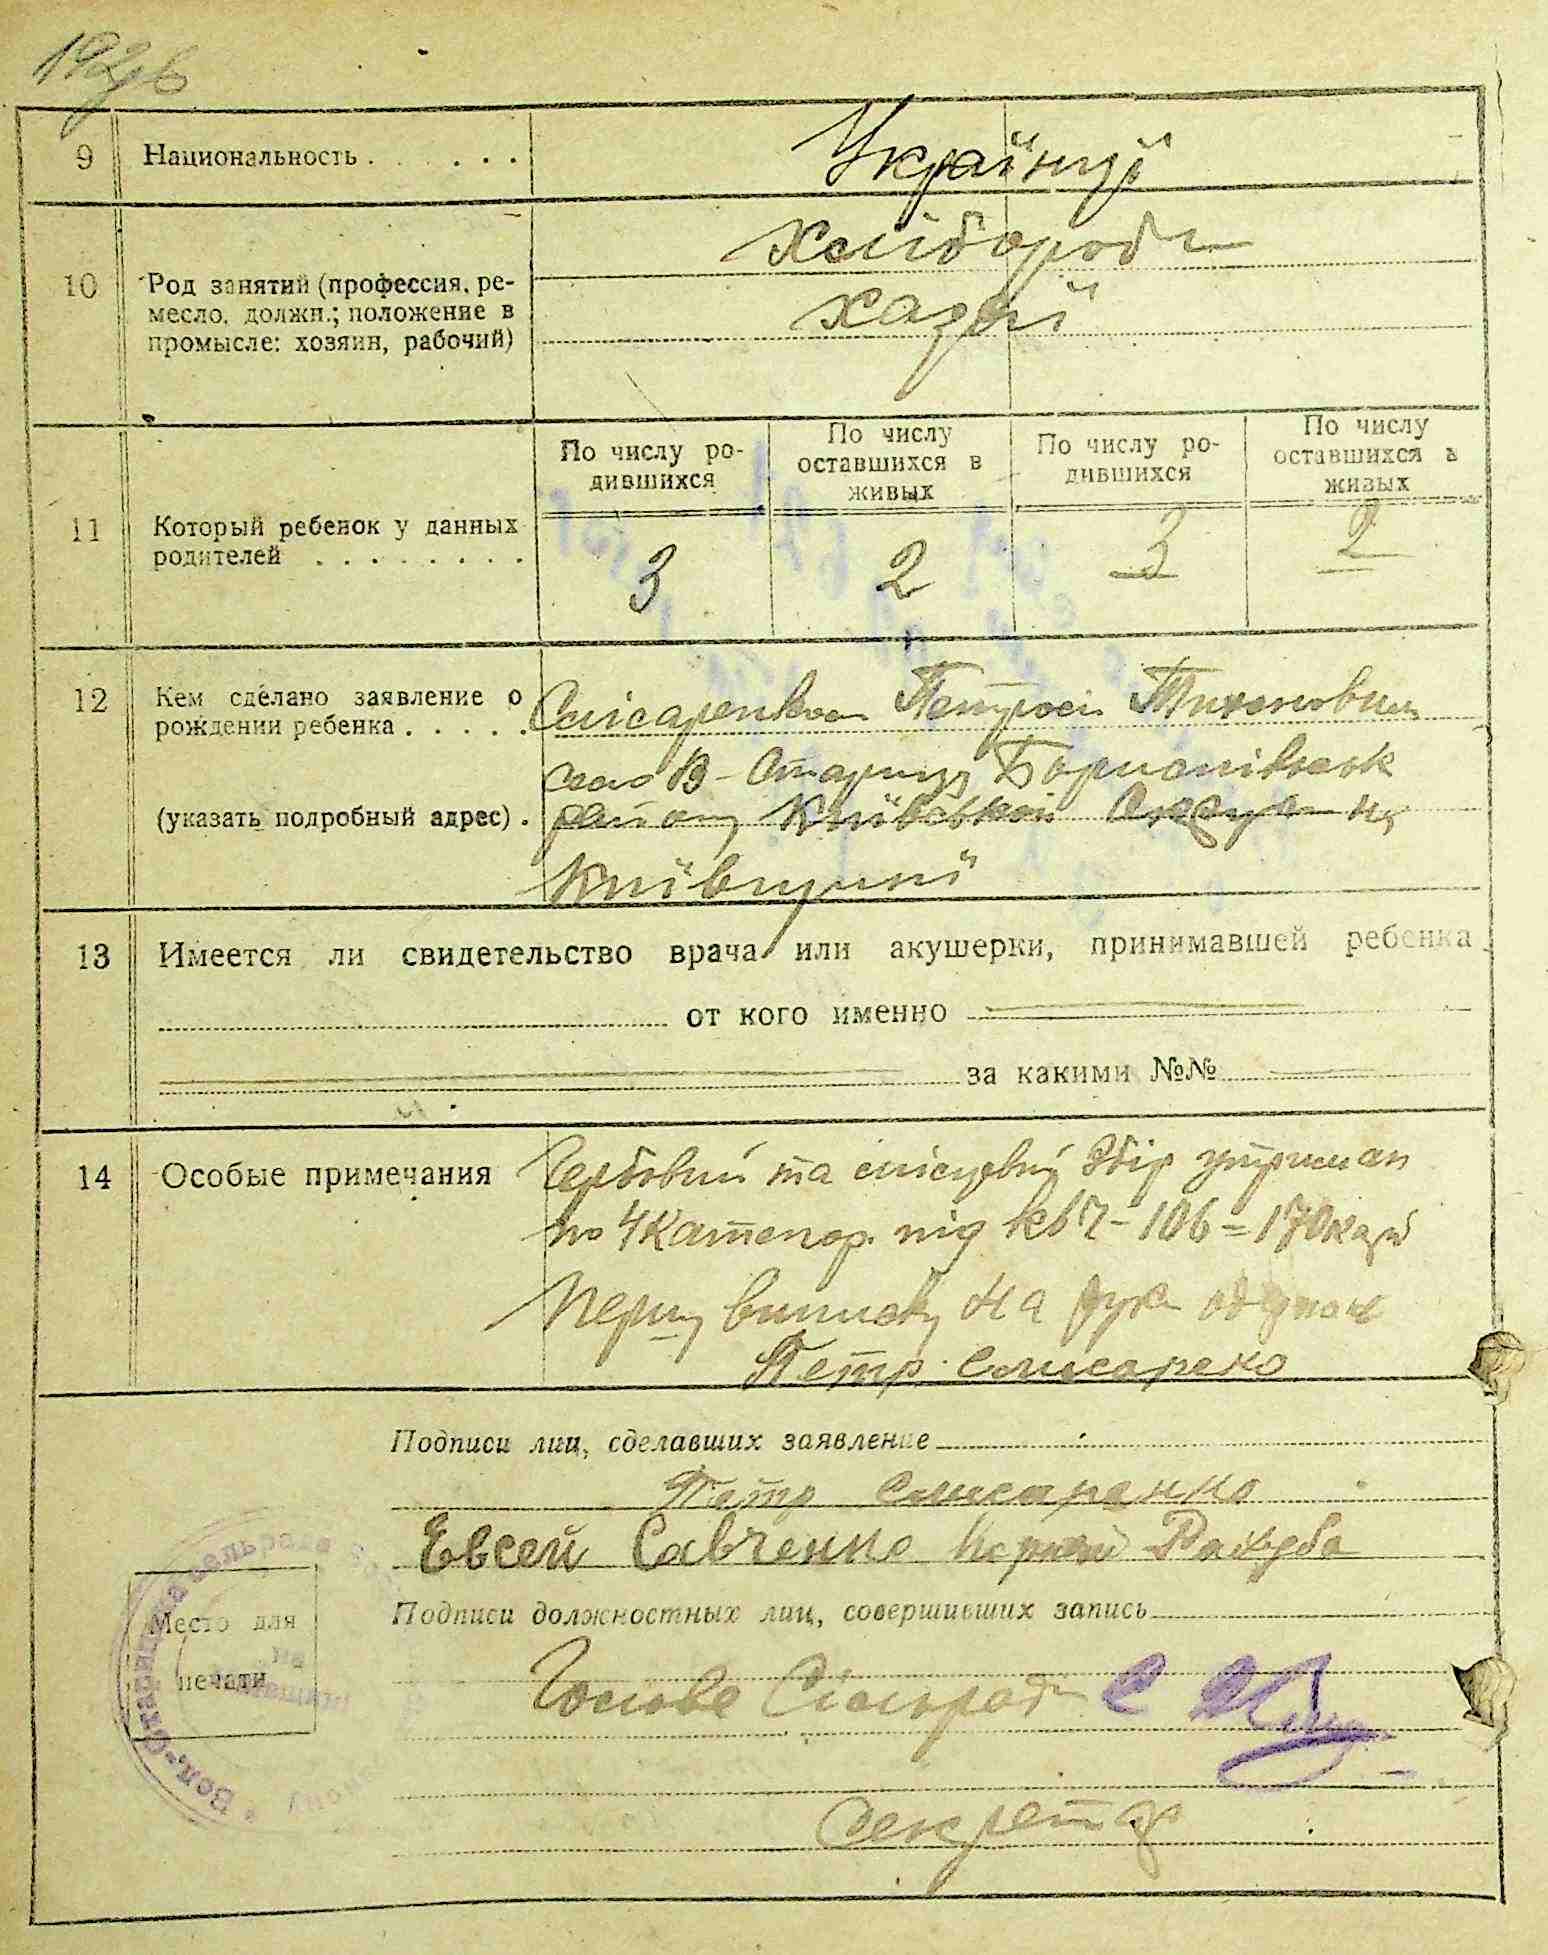 1926
9 Национальность . . . . . . Українці
10 Род занятий (профессия, ре-
месло, должн.; положение в
промысле: хозяин, рабочий)
Хліборобы
хазяї
11 Который ребенок у данных
родителей . . . . . . . .
По числу ро-
дившихся
По числу
оставшихся в
живых
По числу ро-
дившихся
По числу
оставшихся в
живых
3 2 3 2
12 Кем сделано заявление о
рождении ребенка . . . . .
(указать подробный адрес) .
Слісаренком Петром Тихонович
село В-Стариця Бориспільськ
району Київської Округи на
Київщині
13 Имеется ли свидетельство врача или акушерки, принимавшей ребенка
от кого именно
за какими №№
14 Особые примечания
Гербовий та місцевий Збір утриман
по 4 категор. під кв Ч-106=170
Першу виписку на рук одержав
Петр Слисарено
Подписи лиц, сделавших заявление
Петр Слисаренко
Евсей Савченко
Подписи должностных лиц, совершивших запись
Место для
печати
Голова Сільради С
Секретар
Вел.-Старицька сільрада